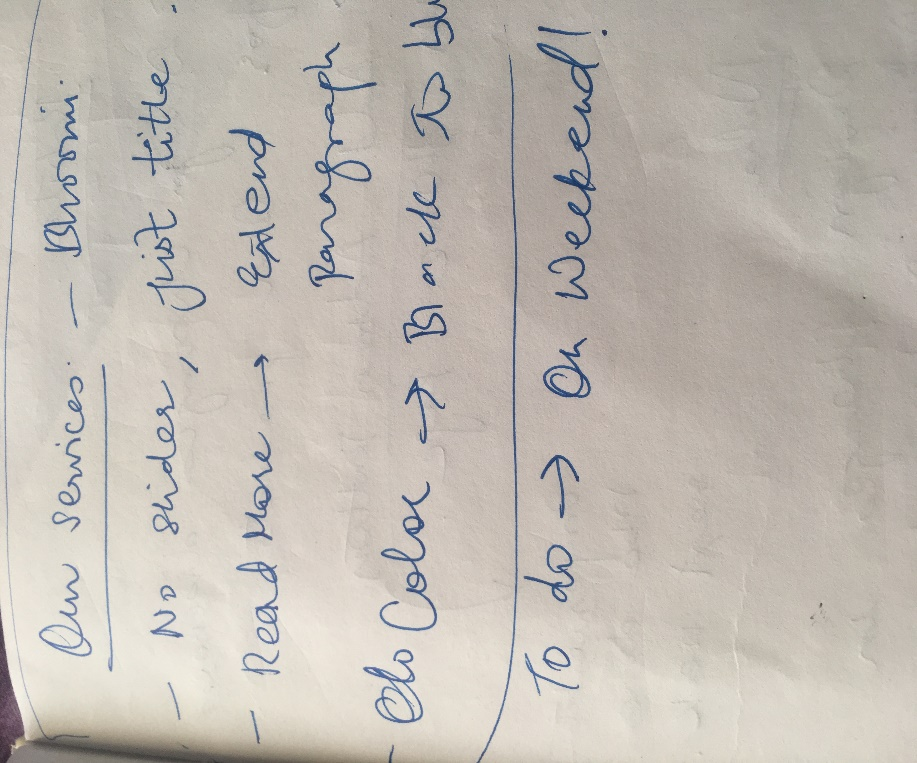 Our services - Bhoomi.
- No slider, just title.
- Read More → Extend
Paragraph
- Color → Black To
To do → On Weekend!